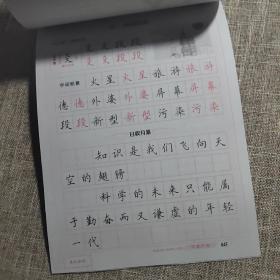 灵 灵 段 段
字词积累 火星 火星 旅游 旅游
德 德 外婆 外婆 屏幕 屏幕
段 段 新型 新型 污染 污染
日积月累
知识是我们飞向天
空的翅膀
科学的未来只能属
于勤奋而又谦虚的年轻
一代